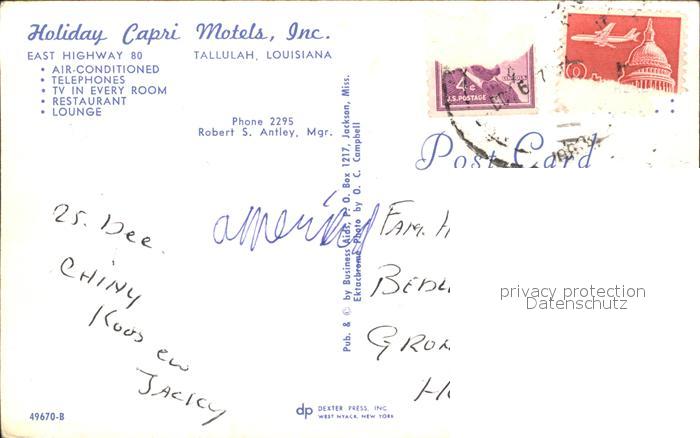 Holiday Capri Motels, Inc.
EAST HIGHWAY 80 TALLULAH, LOUISIANA
• AIR-CONDITIONED
• TELEPHONES
• TV IN EVERY ROOM
• RESTAURANT
• LOUNGE
Phone 2295
Robert S. Antley, Mgr.
4¢
U.S. POSTAGE
Post Card
Pub. & © by Business Aids, P. O. Box 1217, Jackson, Miss.
Ektachrome Photo by O. C. Campbell
25. Dec.
CHINY
Koos en
JACKY
FAM. H
BEDU
GRO
H
privacy protection
Datenschutz
49670-B
dp DEXTER PRESS, INC.
WEST NYACK, NEW YORK